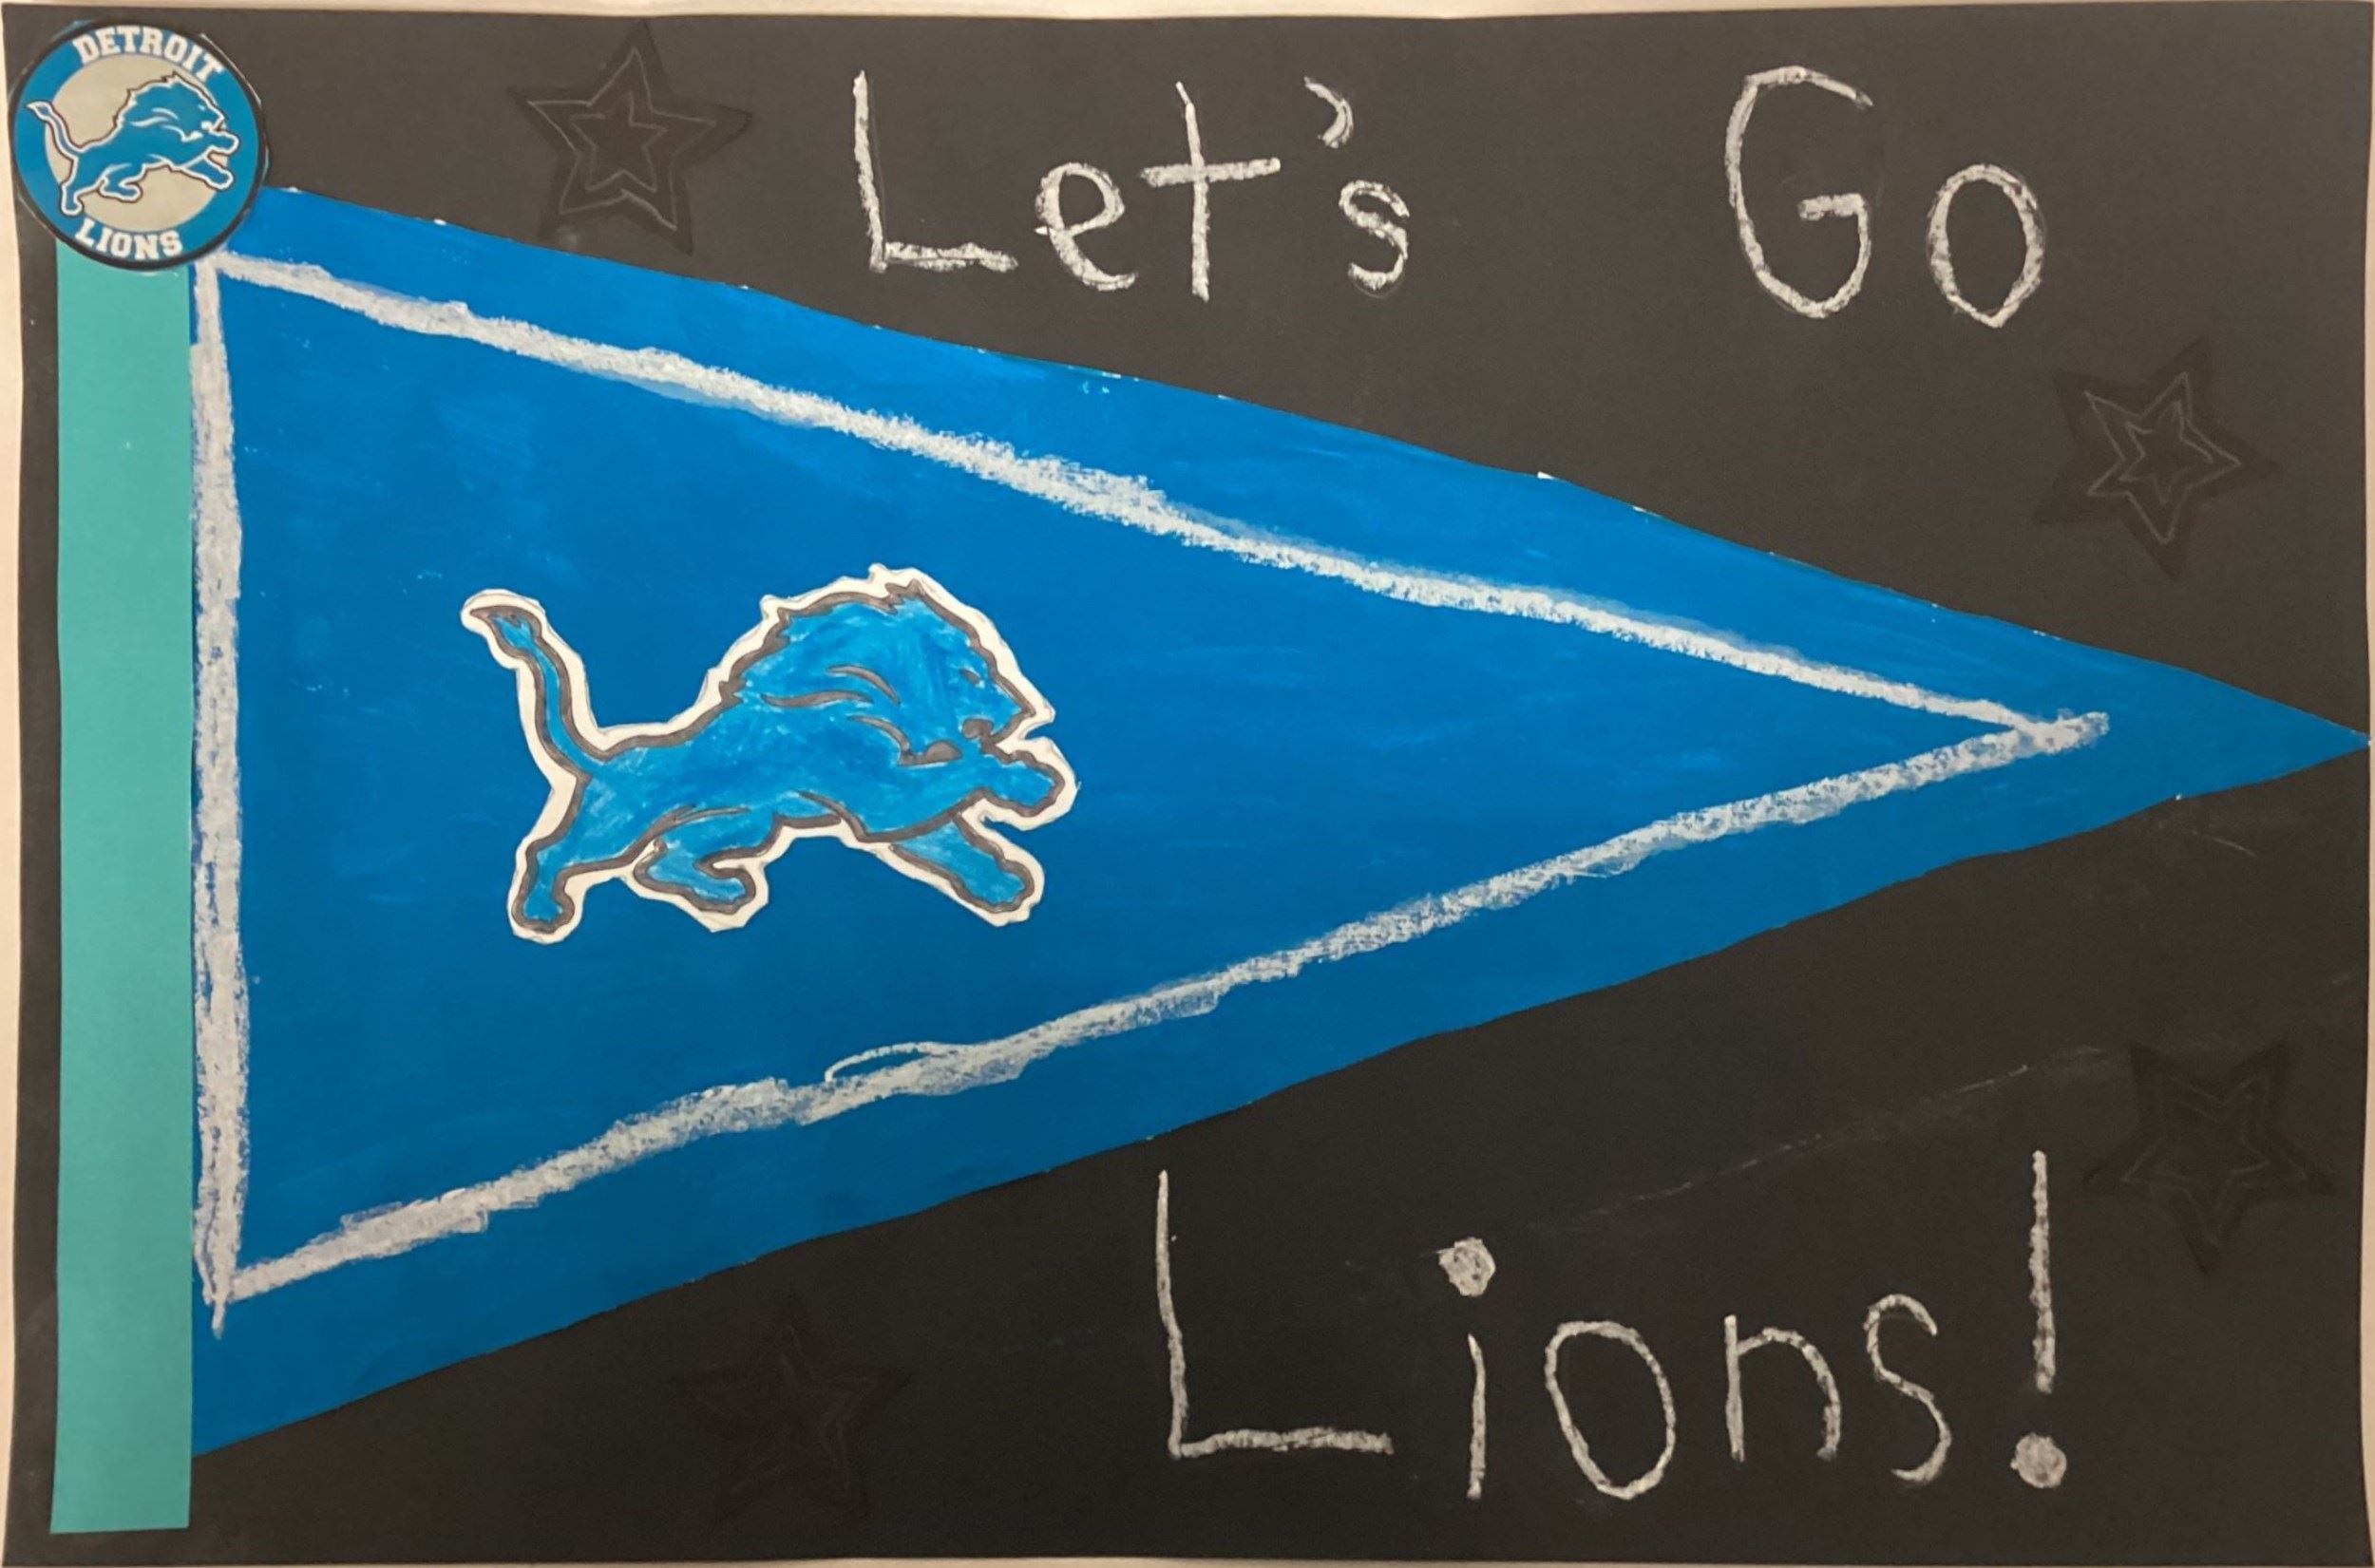 DETROIT
LIONS
Let's Go
Lions!